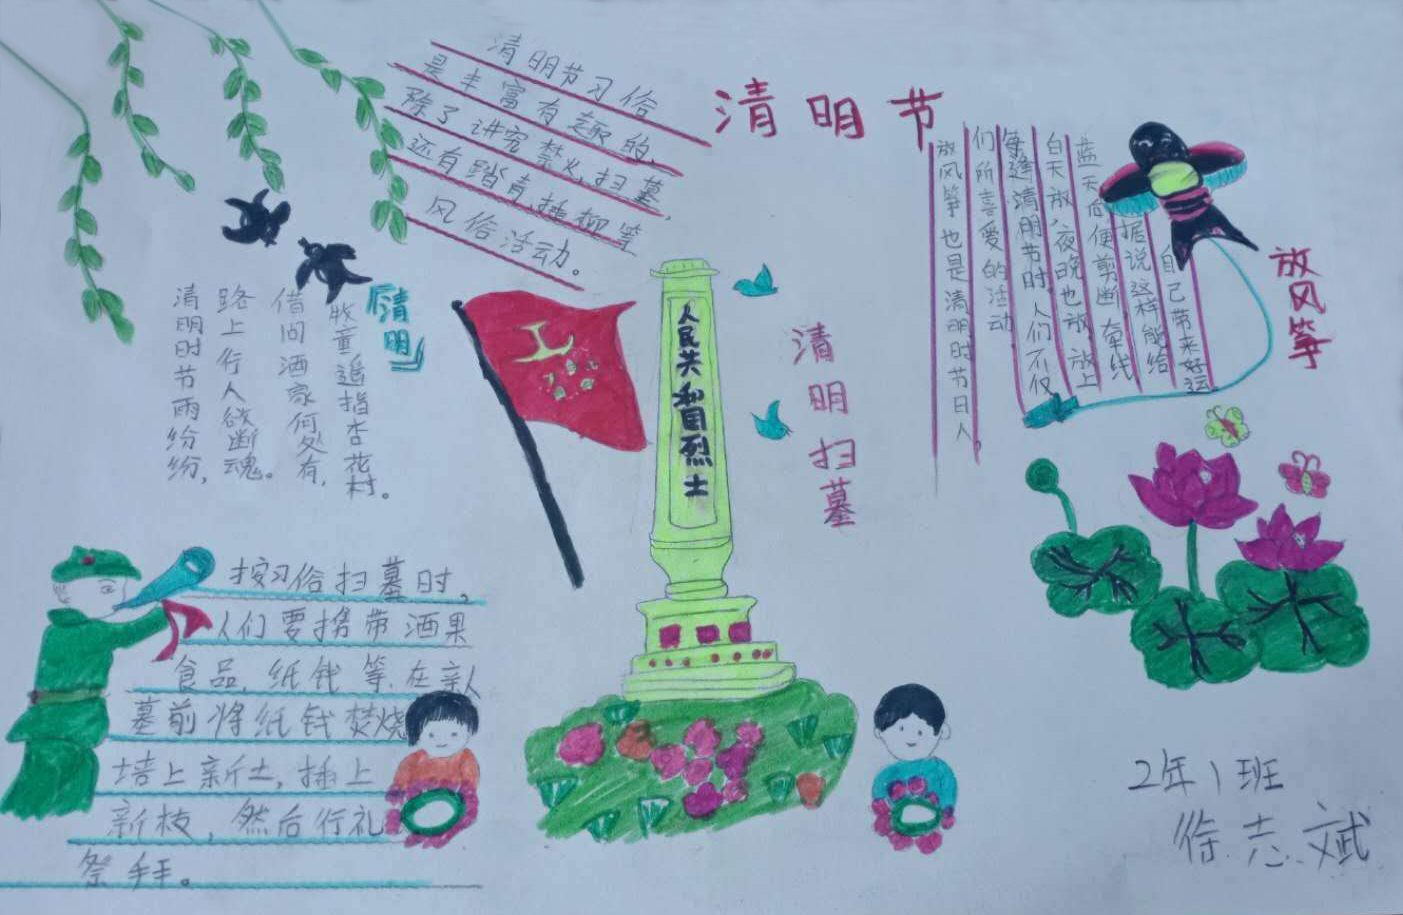 清明节
清明节习俗
是丰富有趣的,
除了讲究禁火,扫墓,
还有踏青,插柳等
风俗活动。
清明
清明时节雨纷纷,
路上行人欲断魂。
借问酒家何处有,
牧童遥指杏花村。
人民共和国烈士
清明扫墓
放风筝
放风筝也是清明时节日人,
们所喜爱的活动
每逢清明节时,人们不仅
白天放,夜晚也放,放上
蓝天后便剪断牵线
据说这样能给
自己带来好运
按习俗扫墓时,
人们要携带酒果
食品,纸钱等,在亲人
墓前将纸钱焚烧
培上新土,插上
新枝,然后行礼
祭拜。
2年1班
徐志斌